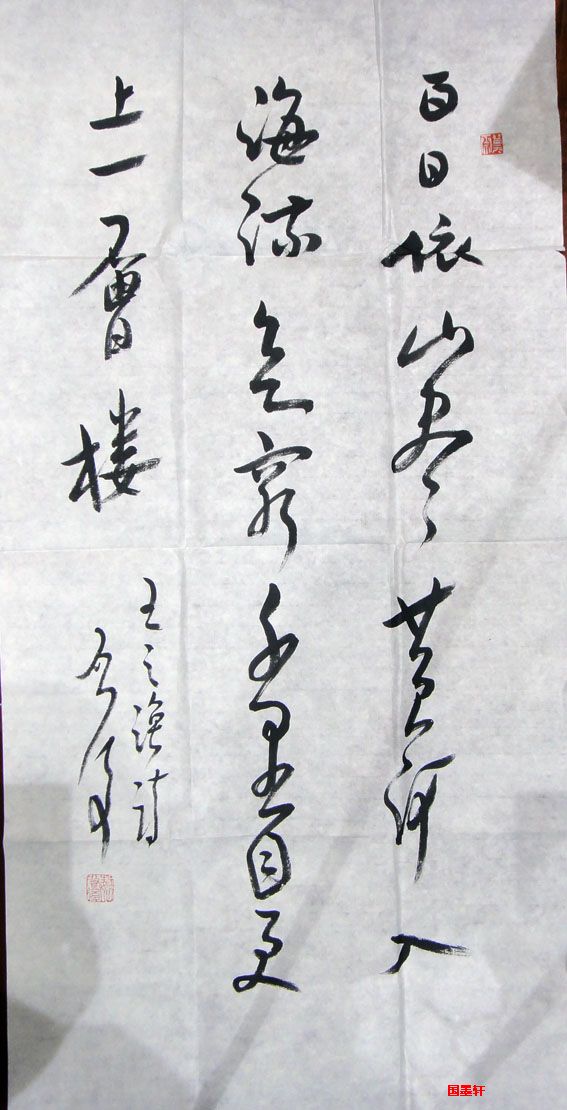 白日依山尽黄河入
海流欲穷千里目更
上一層楼
王之涣诗
国墨轩